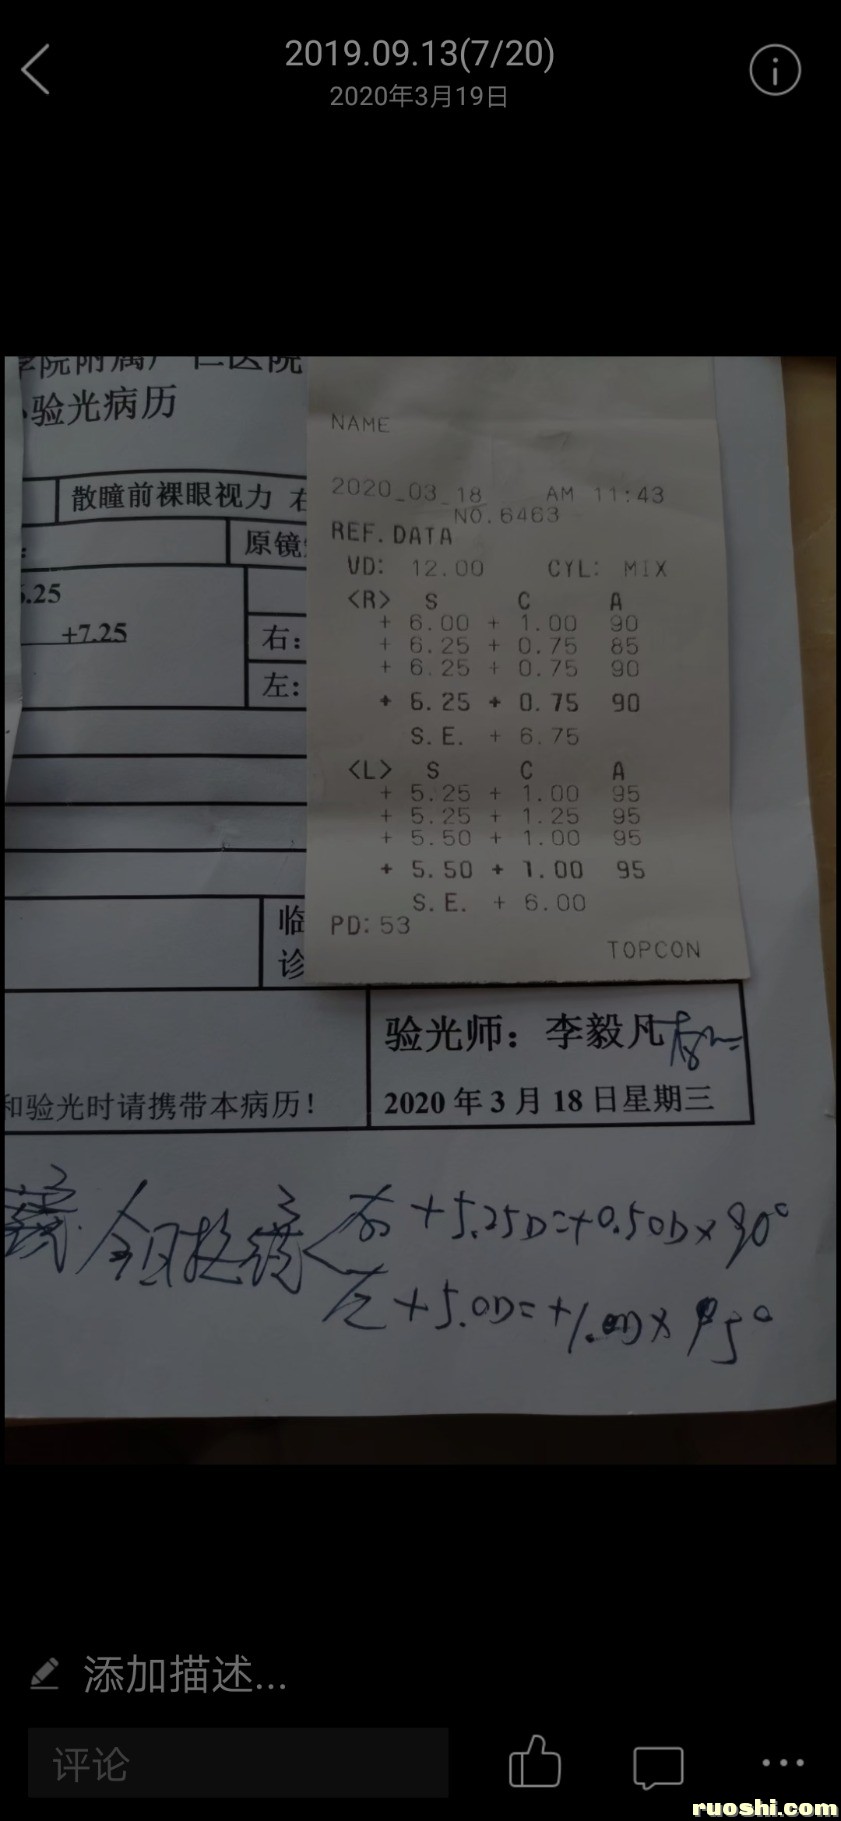 2019.09.13(7/20)
2020年3月19日
学院附属广仁医院
验光病历
散瞳前裸眼视力 右
原镜
.25
+7.25
右：
左：
临
诊
NAME
2020_03_18 AM 11:43
NO.6463
REF.DATA
VD: 12.00 CYL: MIX
<R> S C A
+ 6.00 + 1.00 90
+ 6.25 + 0.75 85
+ 6.25 + 0.75 90
+ 6.25 + 0.75 90
S.E. + 6.75
<L> S C A
+ 5.25 + 1.00 95
+ 5.25 + 1.25 95
+ 5.50 + 1.00 95
+ 5.50 + 1.00 95
S.E. + 6.00
PD: 53
TOPCON
验光师：李毅凡
2020 年 3 月 18 日星期三
和验光时请携带本病历！
右 +5.25D=+0.50D×90°
左 +5.0D=+1.00D× 95°
添加描述...
评论
ruoshi.com